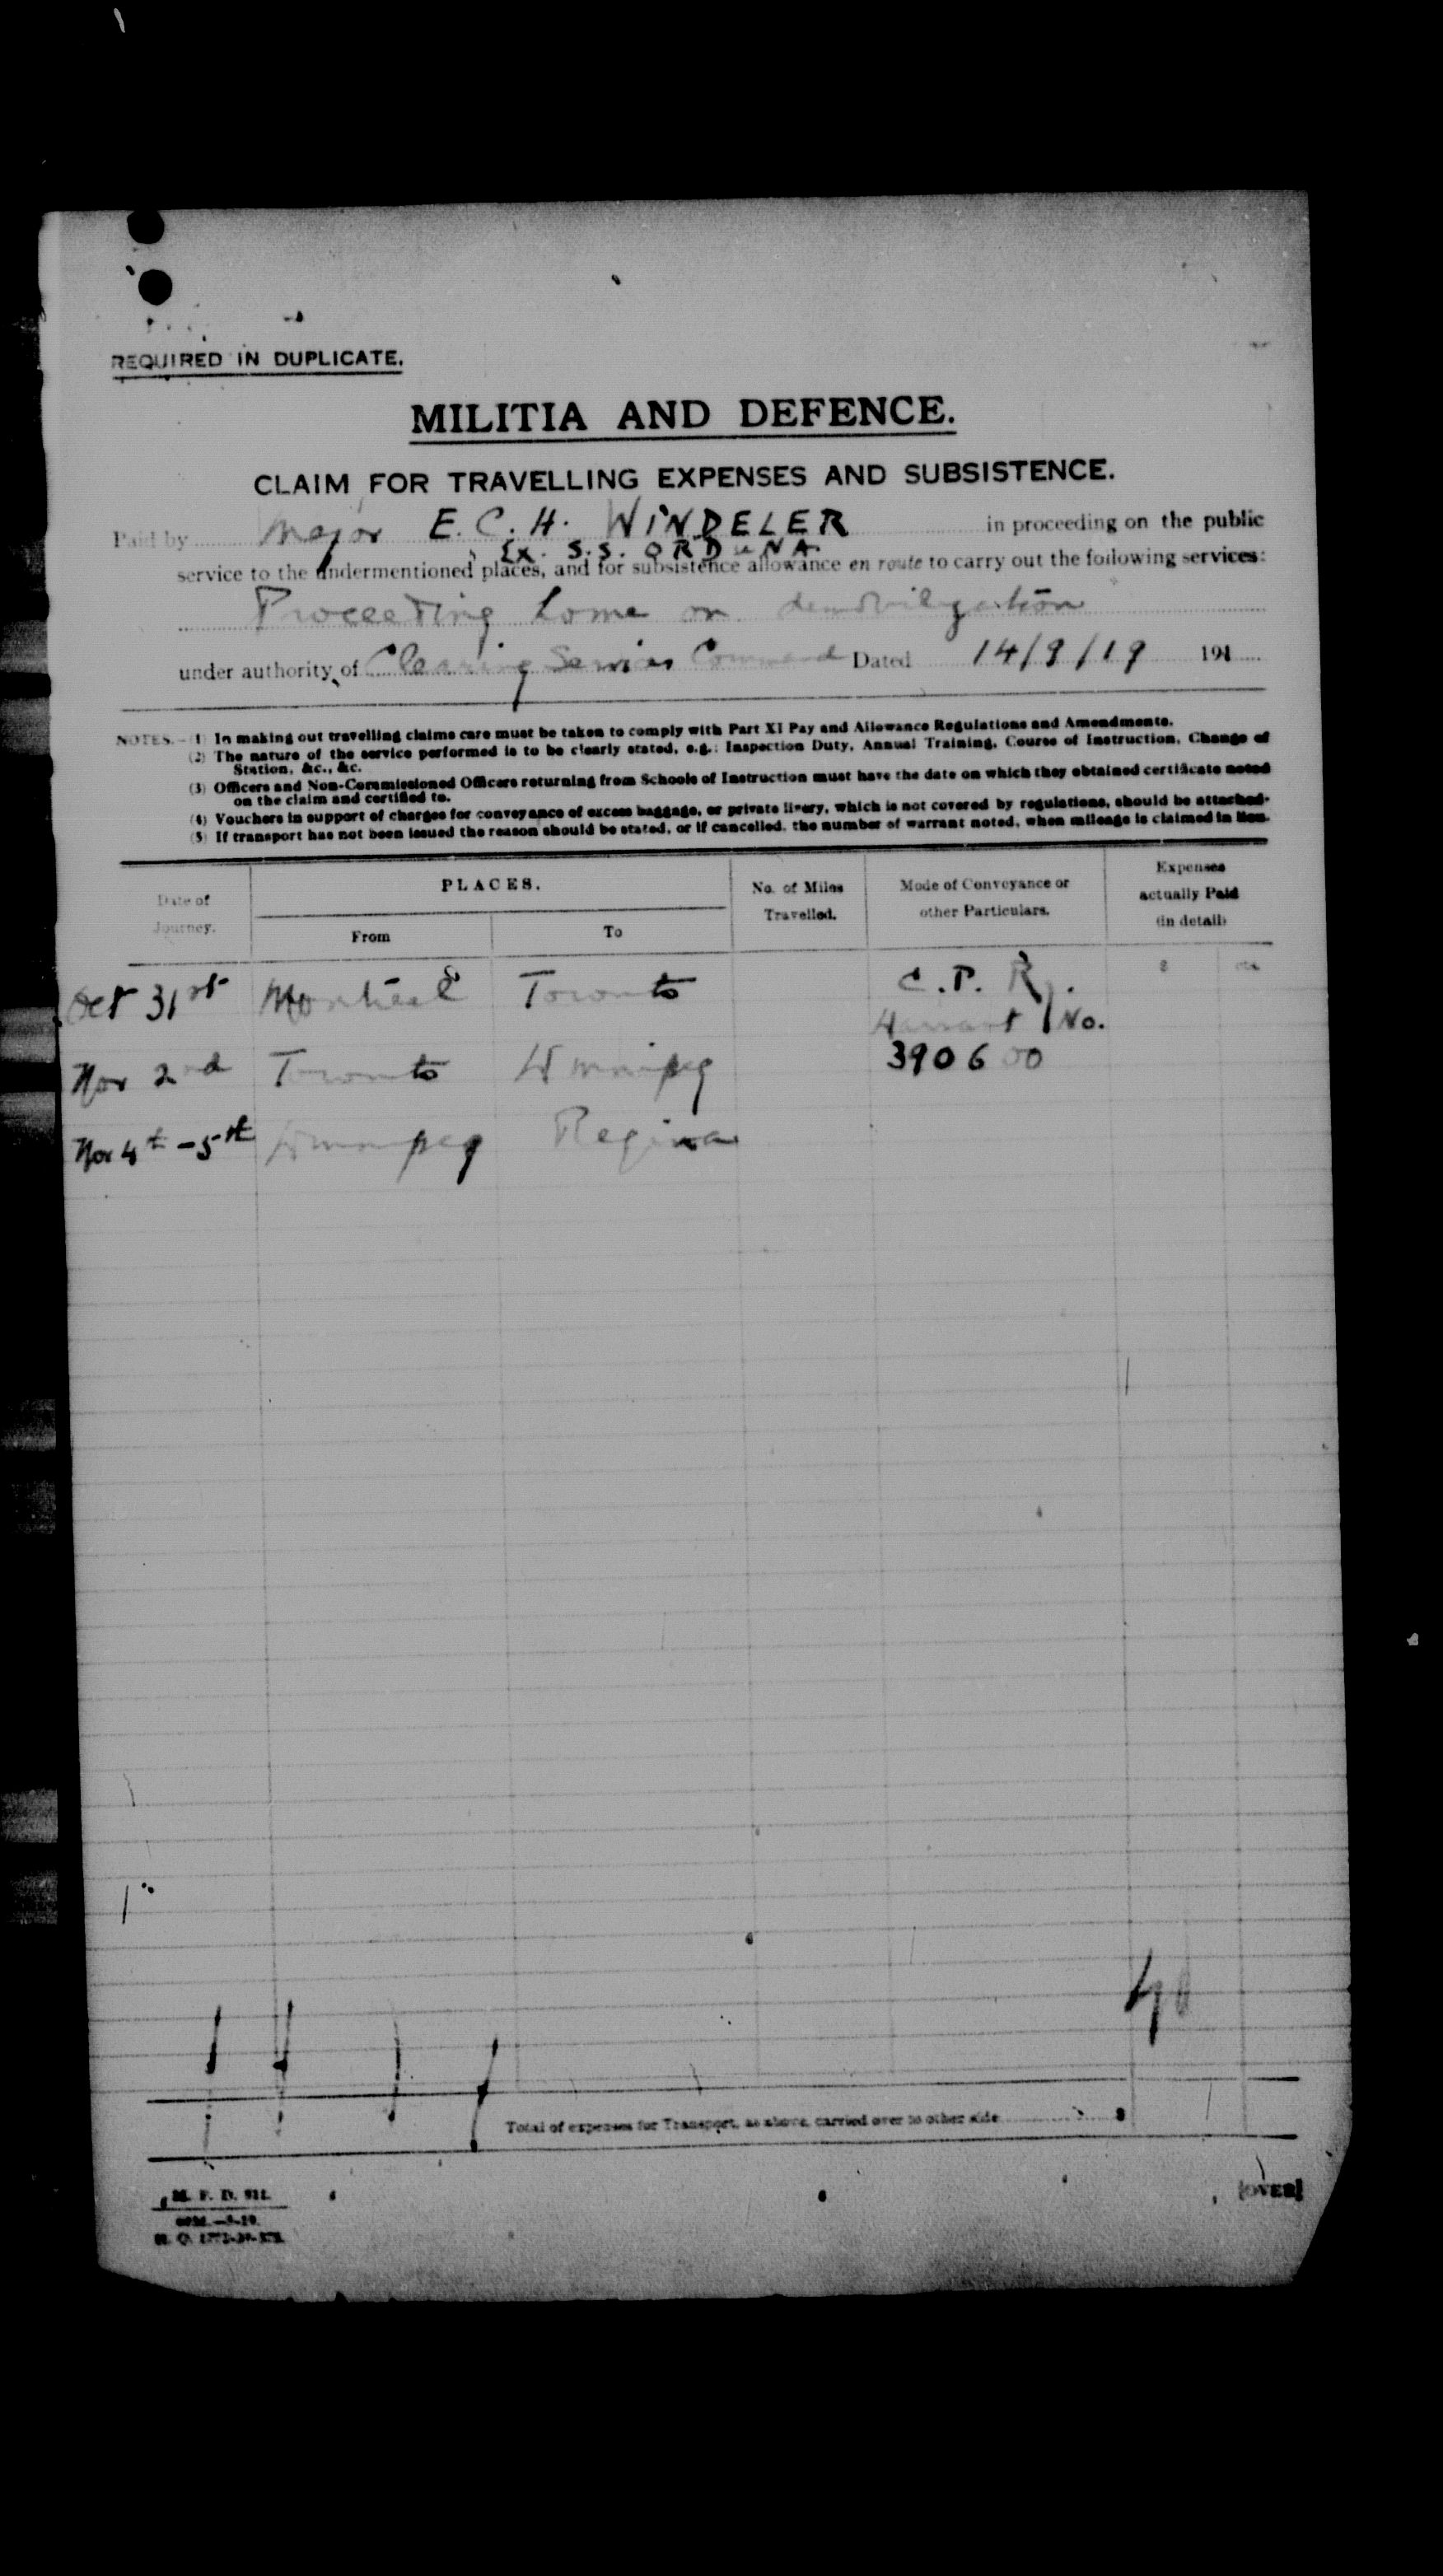 REQUIRED IN DUPLICATE.
MILITIA AND DEFENCE.
CLAIM FOR TRAVELLING EXPENSES AND SUBSISTENCE.
Paid by Major E. C. H. WINDELER in proceeding on the public
Ex. S.S. ORDUNA
service to the undermentioned places, and for subsistence allowance en route to carry out the following services:
Proceeding home on demobilization
under authority of Clearing Services Command Dated 14/9/19 191
NOTES.—(1) In making out travelling claims care must be taken to comply with Part XI Pay and Allowance Regulations and Amendments.
(2) The nature of the service performed is to be clearly stated, e.g.: Inspection Duty, Annual Training, Course of Instruction, Change of
Station, &c., &c.
(3) Officers and Non-Commissioned Officers returning from Schools of Instruction must have the date on which they obtained certificate noted
on the claim and certified to.
(4) Vouchers in support of charges for conveyance of excess baggage, or private livery, which is not covered by regulations, should be attached.
(5) If transport has not been issued the reason should be stated, or if cancelled, the number of warrant noted, when mileage is claimed in lieu.
Date of Journey. PLACES. No. of Miles Travelled. Mode of Conveyance or other Particulars. Expenses actually Paid (in detail)
From To
Oct 31st Montreal Toronto C.P. Ry.
Warrant No.
Nov 2nd Toronto Winnipeg 390600
Nov 4th-5th Winnipeg Regina
Total of expenses for Transport, as above, carried over to other side $
M. F. D. 911.
[OVER]